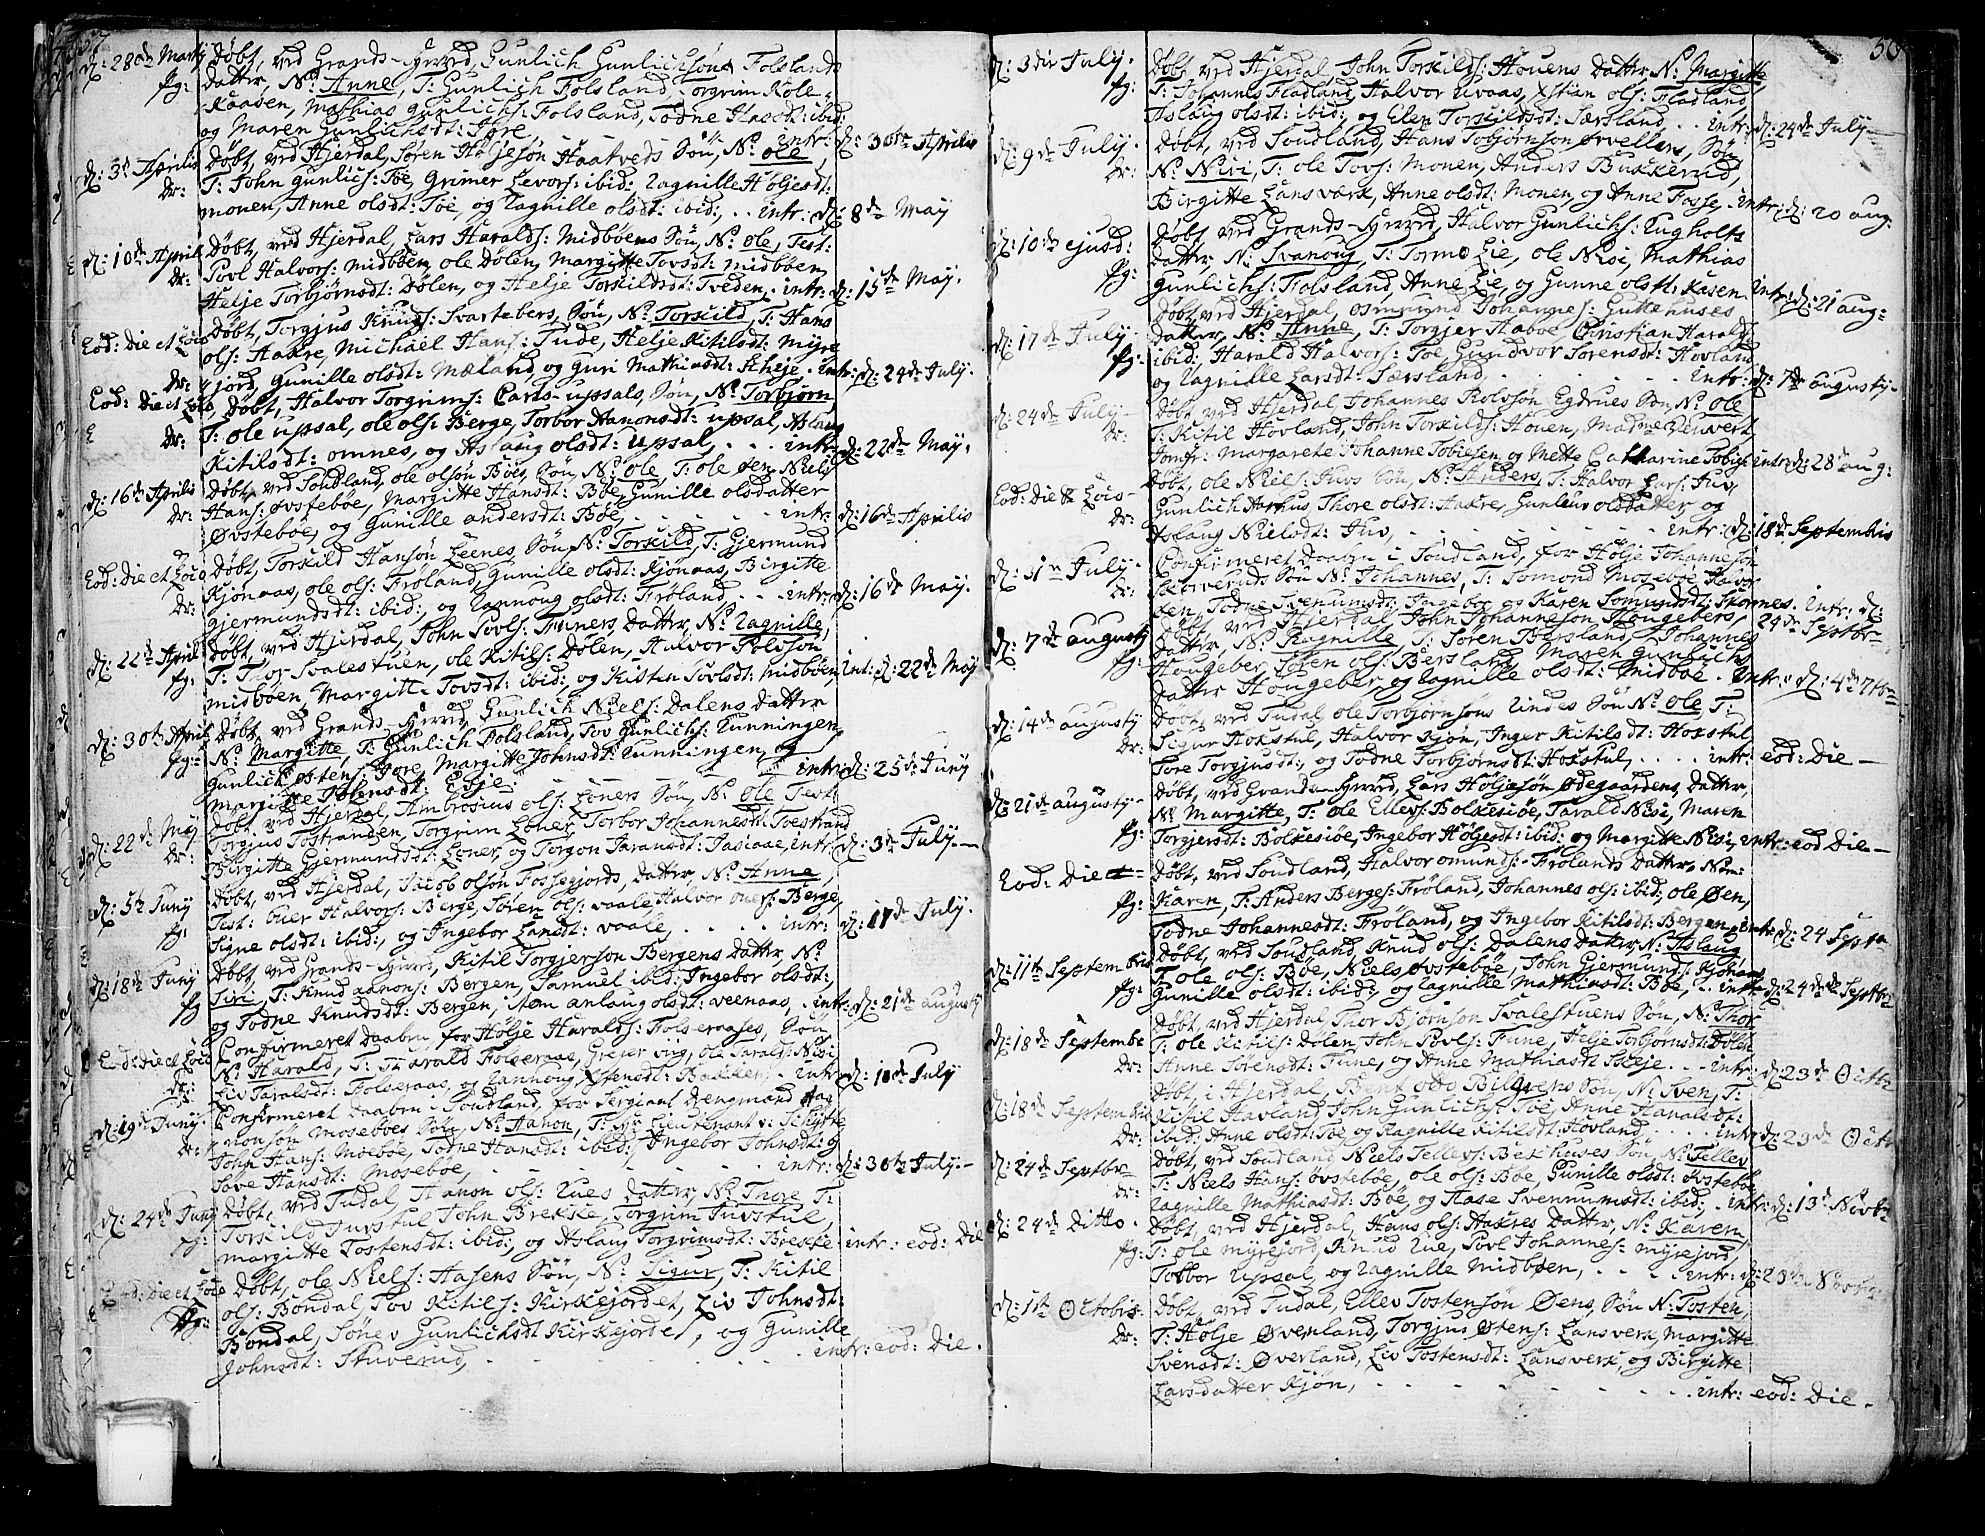 d: 28de Martj Døbt, ved Grands-Herred, Gunlich Gunlichsøns Folslands
pg: datter, N: Anne, T: Gunlich Folsland, Torgrim Kole-
Kaasen, Mathias gunlichs: Folsland, Todne Haosdt: ibid:
og Maren Gunlichsdt: Ipre, intr: d: 30te Aprilis
d: 3de Aprilis Døbt, ved Hjerdal, Søren Høljesøn Haatveds Søn, N: ole
dr: T: John gunlics: Toe, Grimer Levors: ibid: Ragnille Høljesdt:
monen, Anne olsdt: Toe, og Ragnille olsdt: ibid:, . . intr: d: 8de May
d: 10de April Døbt, ved Hjerdal, Lars Haralds: Midbøens Søn, N: ole, Test:
dr: Povl Halvors: Midbøen, ole Dølen, Margitte Tovsdt: midbøen,
Helje Torbjørnsdt: Dølen, og Helje Torkildsdt: Tveden, intr: d: 15de May.
Eod: Die et Loco Døbt, Torgius Knuds: Svartebers, Søn, N: Torskild, T: Hans
ols: Hakre, Michael Hans: Tude, Helje Kitilsdt: Myre
dr: jord, Gunille olsdt: Mæland, og Guri Mathiasdt: Scheje. intr: d: 24de July.
Eod: Die et Loco, Døbt, Halvor Torgrims: Carls-upsals, Søn, N: Torbjørn,
dr: T: ole upsal, ole ols: Berge, Torbor Hanonsdt: upsal, Aslaug
Kitilsdt: omnes, og Aslaug olsdt: upsal, . . . intr: d: 22de May.
d: 16de Aprilis Døbt, ved Soudland, ole olsøn Bøes Søn, N: ole, T: ole øen, Niels
dr: Hans: øvstebøe, Margitte Hansdt: Bøe, Gunille olsdatter
Øvstebøe, og Gunille andersdt: Bøe, . . . intr: d: 16de Aprilis
Eod: Die et Loco Døbt, Torskild Hansøn Leenes, Søn, N: Torskild, T: Gjermund
dr: Kjonaas, ole ols: Frøland, Gunille olsdt: Kjonaas, Birgitte
Gjermundsdt: ibid:, og Rannoug olsdt: Frøland, . . . intr: d: 16de May.
d: 22de April Døbt, ved Hjerdal, John Povls: Funers, Datter, N: Ragnille,
pg: T: Tor Svalestuen, ole Kitils: Dølen, Halvor Polvsøn
midbøen, Margitte Tovsdt: ibid:, og Kisten Povlsdt: Midbøen, int: d: 22de May
d: 30te April Døbt, ved Grands-Herred, Gunlich Niels: Dalens Datter
pg: N: Margitte, T: Gunlich Folsland, Tov Gunlichs: Runningen,
Gunlich Østens: Ipre, Margitte Johnsdt: Runningen, og
Margitte intr: d: 25de Juny
d: 22de May Døbt, ved Hjerdal, Ambrosius ols: Loners Søn, N: Ole Test:
dr: Torgius Tostranden, Torgrim Loner, Torbor Johannesdt: Toestrand
Birgitte Gjermundsdt: Loner, og Torgon Taransdt: intr: d: 3de July.
d: 5te Juny Døbt, ved Hjerdal, Jacob olsøn Fossegjords, Datter, N: Anne,
pg: Test: Halvors: Berge, Søren ols: vaale, Halvor Berge,
Signe olsdt: ibid:, og Ingebor Landt: vaale, . . . intr: d: 17de July.
d: 18de Juny Døbt, ved Grands-Herred, Kitil Torgjerson Bergens Datter, N:
pg Siri, T: Knud aanons: Bergen, Samuel ibid: Ingebor olsdt:
og Todne Knudsdt: Bergen, item anlaug olsdt: veenaas, . intr: d: 21de augusty
Eod: Die et Loco Confirmeret Daaben, for Hølje Haralds: Folseraases, Søn,
dr: N: Harald, T: Harald Folseraas, ole Tarals: Nisi
Liv Taralsdt: Folseraas, og Rannoug intr: d: 10de July
d: 19de Juny Confirmeret Daaben i Soudland, for Sergiant Drengmand Haa-
dr: nonsøn Moseboes Søn, N: Hanon, T: Hr Lieutenant v: Schytte
John Hans: Moebøe, Todne Hansdt: ibid:, Ingebor Johnsdt: og
Tove Hansdt: Mosebøe, intr: d: 30te July.
d: 24de Juny Døbt, ved Tudal, Hanon ols: Rues Datter, N: Thore, T:
pg: Torskild Juvstul, John Brekke, Torgrim Juvstul,
margitte Tostensdt: ibid:, og Aslaug Torgrimsdt: Brekke intr: eod: Die
Eod: Die et Loco Døbt, ole Niels: Hasens Søn, N: Sigur, T: Kitil
ols: Bondal, Tov Kitils: Kirkejordet, Liv Johnsdt:
Bondal, Sønev Gunlichsdt Kirkejordet, og Gunille
Johnsdt: Skuverud, intr: eod: Die.
50
d: 3die July. Døbt, ved Hjerdal, John Torskilds: Houens Datter, N: Margitte,
pg: T: Johannes Fladland, Halvor uvaas, Xstian ols: Fladland
Aslaug olsdt: ibid:, og Elen Torskildsdt: Særsland . . intr: d: 24de July
d: 9de July. Døbt, ved Soudland, Hans Tosbjørnson Ørvellers, Søn,
dr: N: Nivi, T: ole Tovs: Monen, Anders Bukkerud,
Birgitte Lansværk, Anne olsdt: Monen, og Anne Fosse, intr: d: 20 aug:
d: 10de ejusd: Døbt, ved Grands-Herred, Halvor Gunlichs: Rugholts
pg: Datter, N: Svanoug, T: Tormo Lie, ole Nisi, Mathias
Gunlichs: Folsland, Anne Lie, og Gunne olsdt: Kasen. intr: d: 21 aug:
d: 17de July Døbt, ved Hjerdal, Osmund Johannes: Gukehuses
pg: Datter, N: Anne, T: Torgjer Aaboe, Christian Haralds:
ibid: Harald Halvors: Toe, Gundvor Sorensdt: Hovland,
og Ragnille Larsdt: Særsland, . . . intr: d: 7de augusty.
d: 24de July Døbt, ved Hjerdal, Johannes Rolvsøn Egdrues Søn, N: ole
dr: T: Kitil Hovland, John Torskilds: Houen, Madme Deuvert
Jomfr: Margarete Johanne Tobiesen, og Mette Catharine Tobies: intr: d: 28de aug:
Eod: Die & Lois Døbt, ole Niels: Juvs Søn, N: Anders, T: Halvor Lars: Juv,
dr: Gunlich Aarhus, Thore olsdt: Hakre, Gunleiv olsdatter og
Aslaug Nielsdt: Juv, . . . intr: d: 18de Septembris
d: 31te July. Confirmeret Daaben i Soudland, for Hølje Johannesøn
dr: Skorveruds Søn N: Johannes, T: Tomond Mosebøe Halvor
Todne Svenumsdt: Ingebor og Karen Somundsdt: Skornes. intr: d:
24de Septbr
d: 7de augusty Døbt, ved Hjerdal, John Johannesøn Hougebers,
pg: Datter, N: Ragnille, T: Søren Bersland, Johannes
Hougeber, Søren ols: Bersland, Maren Gunlichs
datter Hougeber, og Ragnille olsdt: Midboe. intr: d: 4de 7br
d: 14de augusty Døbt, ved Tudal, ole Torbjørnsøns Lindes Søn N: Ole, T:
dr: Sigur Hoxstul, Halvor Kjøn, Inger Kitilsdt: Hoxstul
Tore Torgiusdt:, og Todne Torbjørnsdt: Hoxstul, . . . intr: eod: Die
d: 21de augusty Døbt, ved Grands-Herred, Lars Høljesøn Ødegaardens, Datter,
pg: N: Margitte, T: ole Ellevs: Bolkesiøe, Tarald Nisi, Maren
Torgjersdt: Bolkesiøe, Ingebor Høljesdt: ibid: og Margitte Nisi, intr: eod Die
Eod: Die Døbt, ved Soudland, Halvor omunds: Frølands Datter, Nom:
pg: Karen, T: Anders Berges: Frøland, Johannes ols: ibid:, ole Øen,
Todne Johannesdt: Frøland, og Ingebor Kitilsdt: Bergen, intr: d: 24 Septr
d: 11te Septembris Døbt, ved Soudland, Knud ols: Dalens Datter, N: Aslaug
pg: T: ole ols: Bøe, Niels Øvstebøe, John Gjermunds: Kjonaas,
Gunille olsdt: ibid:, og Ragnille Mathiasdt: Bøe, . . intr: d: 24de Septbr
d: 18de Septembr Døbt, ved Hjerdal, Thor Bjørnson Svalestuens Søn, N: Thor
dr: T: ole Kitils: Dølen, John Povls: Fune, Helje Torbjørnsdt: Dølen
Anne Sørensdt: Fune, og Anne Mathiasdt Skeje. . . intr: d: 23de Octbr
d: 18de Septembris Døbt, i Hjerdal, Bent Otto Søn, N: Sven, T:
dr: Kitil Havland, John Gunlichs: Toe, Anne Hanalsdt:
ibid: Anne olsdt: Toe og Ragnille Kitilsdt: Hovland . . . intr d: 23de Octr
d: 24de Septbr Døbt, ved Soudland Niels Tellevs: Bekhuses Søn, N: Tellev
dr: T: Niels Hans: øvstebøe, ole ols: Bøe, Gunille olsdt: øvstebøe,
Ragnille Mathiasdt: Bøe, og Aase Svennumsdt: ibid:, . intr: d: 13de Novbr
d: 24de Ditto. Døbt, ved Hjerdal, Hans ols: Hakres Datter, N: Karen,
pg: T: ole myrejord, Knud Rue, Povl Johannes: myrejord,
Torbor Upsal, og Ragnille Midbøen, . . . intr: d: 23de Novbr
d: 1te Octobris Døbt, ved Tudal, Ellev Tostensøn Øens, Søn N: Tosten,
dr: T: Hølje Øverland, Torgius Østens: Lansverk, Margitte
Svensdt: Øverland, Liv Tostensdt: Lansverk, og Birgitte
Larsdatter Kjøn, . . . intr: eod: Die.